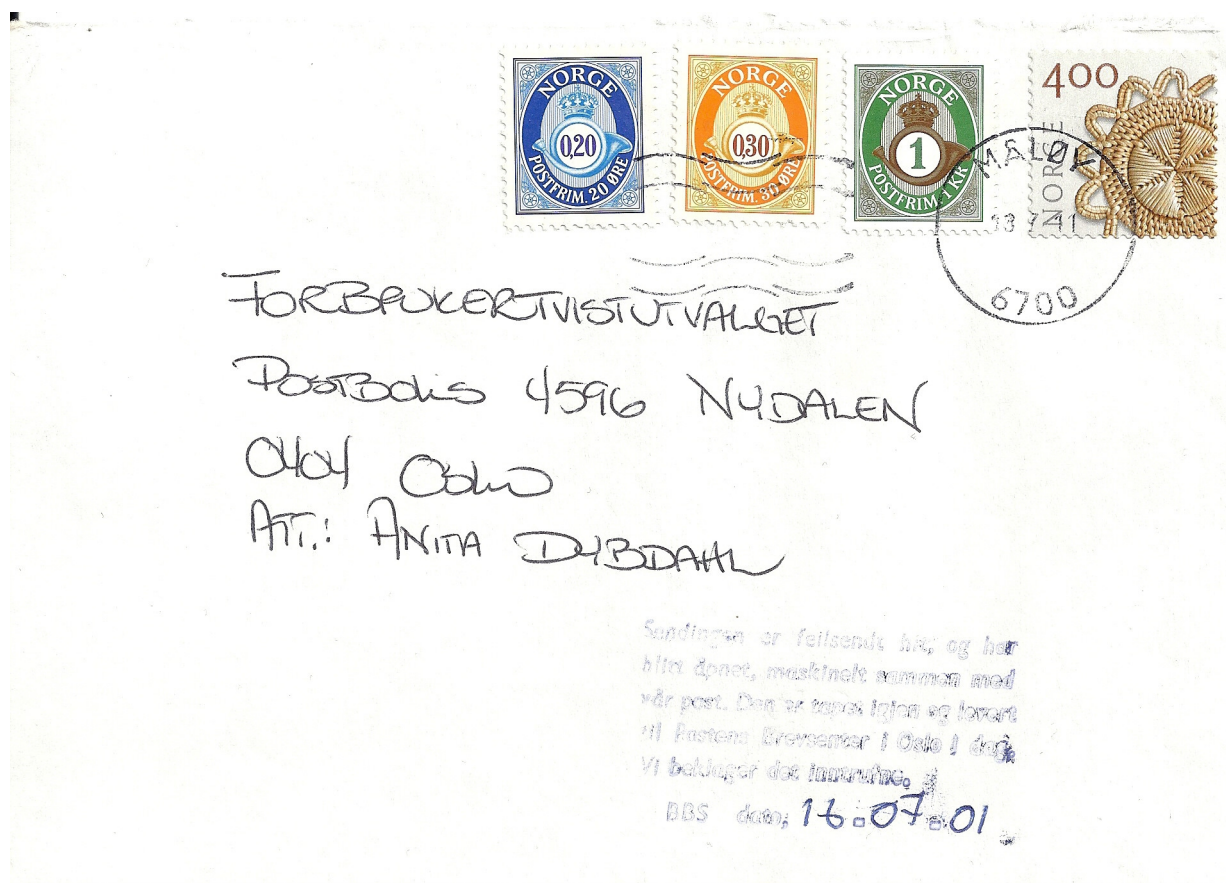 NORGE
0,20
POSTFRIM. 20 ØRE
NORGE
0,30
POSTFRIM. 30 ØRE
NORGE
1
POSTFRIM. 1 KR
400
NORGE
MÅLØY
13 7
6700
FORBRUKERTVISTUTVALGET
POSTBOKS 4596 NYDALEN
0404 OSLO
ATT.: ANITA DYBDAHL
Sendingen er feilsendt hit, og har
blitt åpnet, maskinelt sammen med
vår post. Den er tapet igjen og levert
til Postens Brevsenter i Oslo i dag.
Vi beklager det inntrufne.
BBS dato, 16.07.01